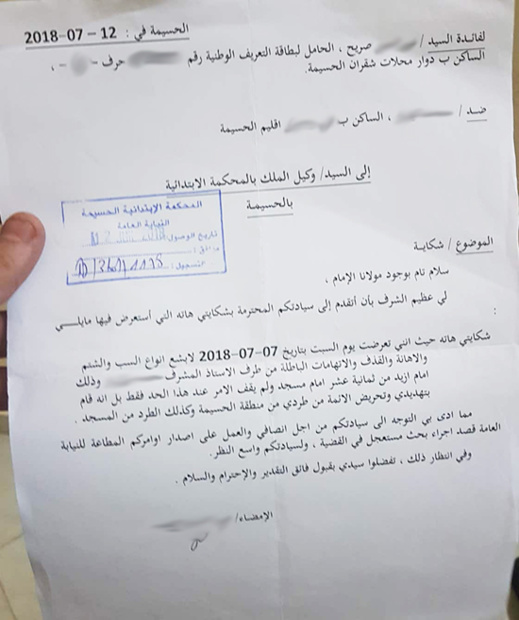 الحسيمة في : 12 – 07-2018
لفائدة السيد/ صريح ، الحامل لبطاقة التعريف الوطنية رقم حرف - - ،
الساكن ب دوار محلات شقران الحسيمة.
ضد / ، الساكن ب اقليم الحسيمة
إلى السيد/ وكيل الملك بالمحكمة الابتدائية
بالحسيمة
المحكمة الإبتدائية الحسيمة
النيابة العامة
تاريخ الوصول
الموضوع / شكاية
سلام تام بوجود مولانا الإمام ،
لي عظيم الشرف بأن أتقدم إلى سيادتكم المحترمة بشكايتي هاته التي أستعرض فيها مايلــــي :
شكايتي هاته حيث انني تعرضت يوم السبت بتاريخ 07-07-2018 لابشع انواع السب والشتم
والاهانة والقذف والاتهامات الباطلة من طرف الاستاذ المشرف وذلك
امام ازيد من ثمانية عشر امام مسجد ولم يقف الامر عند هذا الحد فقط بل انه قام
بتهديدي وتحريض الائمة من طردي من منطقة الحسيمة وكذلك الطرد من المسجد .
مما ادى بي التوجه الى سيادتكم من اجل انصافي والعمل على اصدار اوامركم المطاعة للنيابة
العامة قصد اجراء بحث مستعجل في القضية ، ولسيادتكم واسع النظر.
وفي انتظار ذلك ، تفضلوا سيدي بقبول فائق التقدير والإحترام والسلام .
الإمضاء/